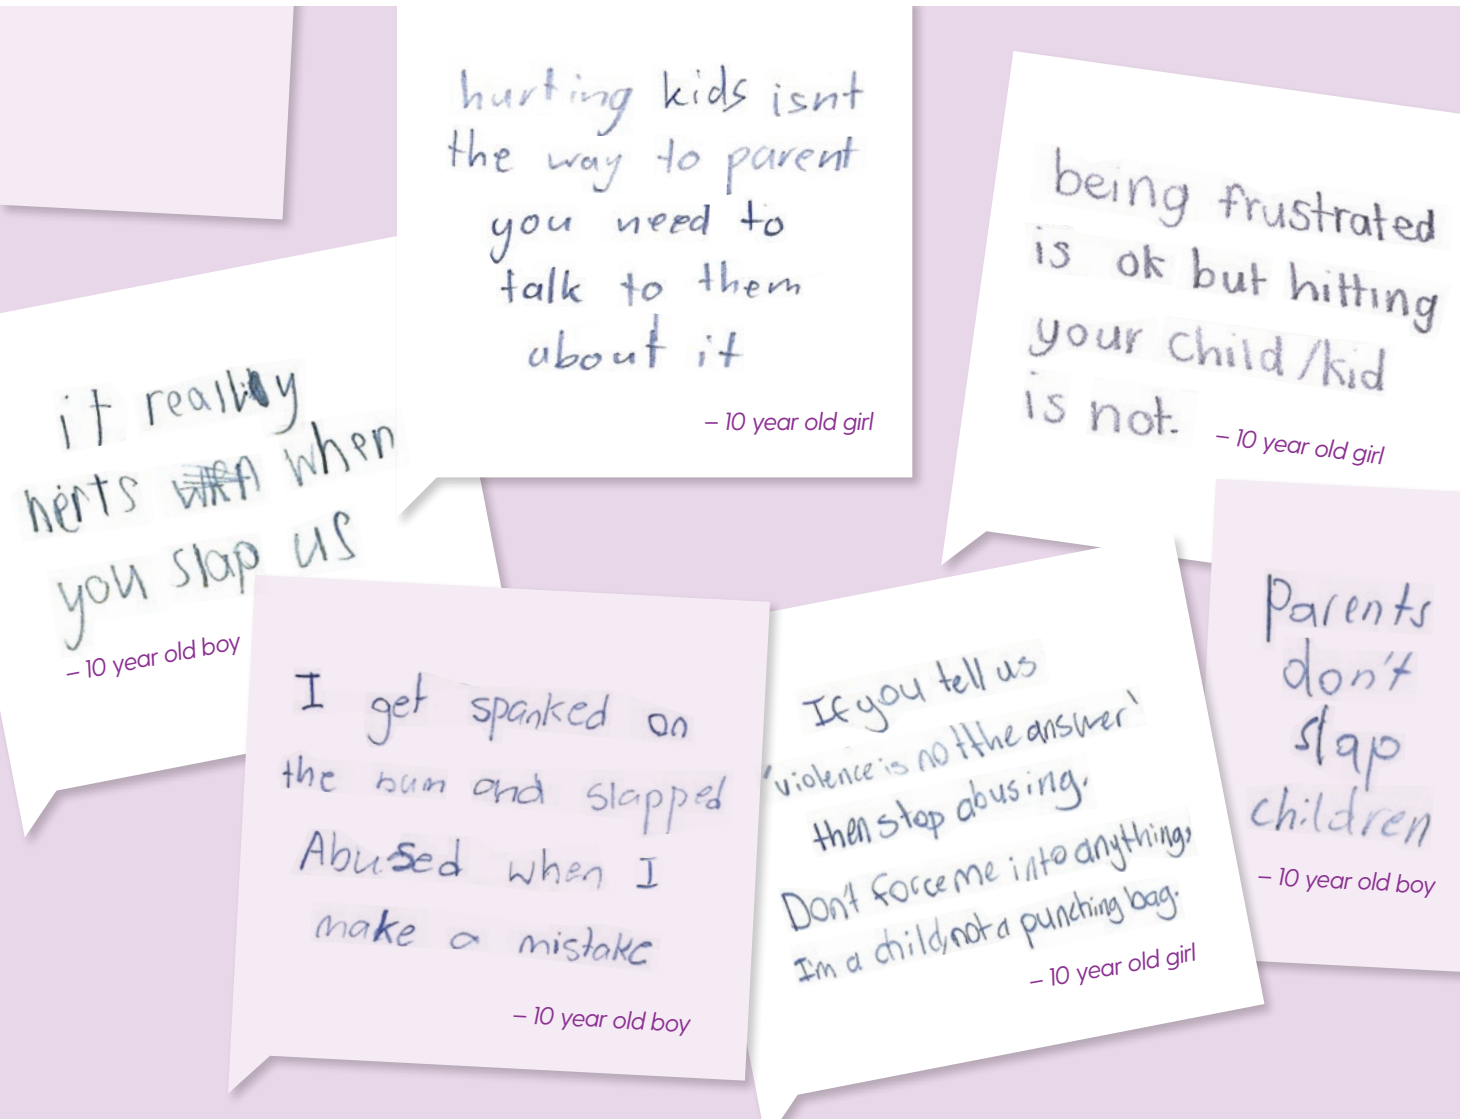 hurting kids isnt
the way to parent
you need to
talk to them
about it
– 10 year old girl
being frustrated
is ok but hitting
your child/kid
is not.
– 10 year old girl
it really
herts when
you slap us
– 10 year old boy
I get spanked on
the bum and slapped
Abused when I
make a mistake
– 10 year old boy
If you tell us
'violence is not the answer'
then stop abusing.
Don't force me into anything,
I'm a child, not a punching bag.
– 10 year old girl
Parents
don't
slap
children
– 10 year old boy